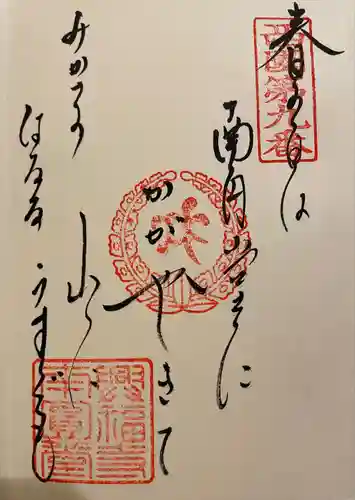 西国第九番
春の日は
南円堂に
かがやきて
みかさの
山に
はるる
うすぐも
興福寺
南円堂